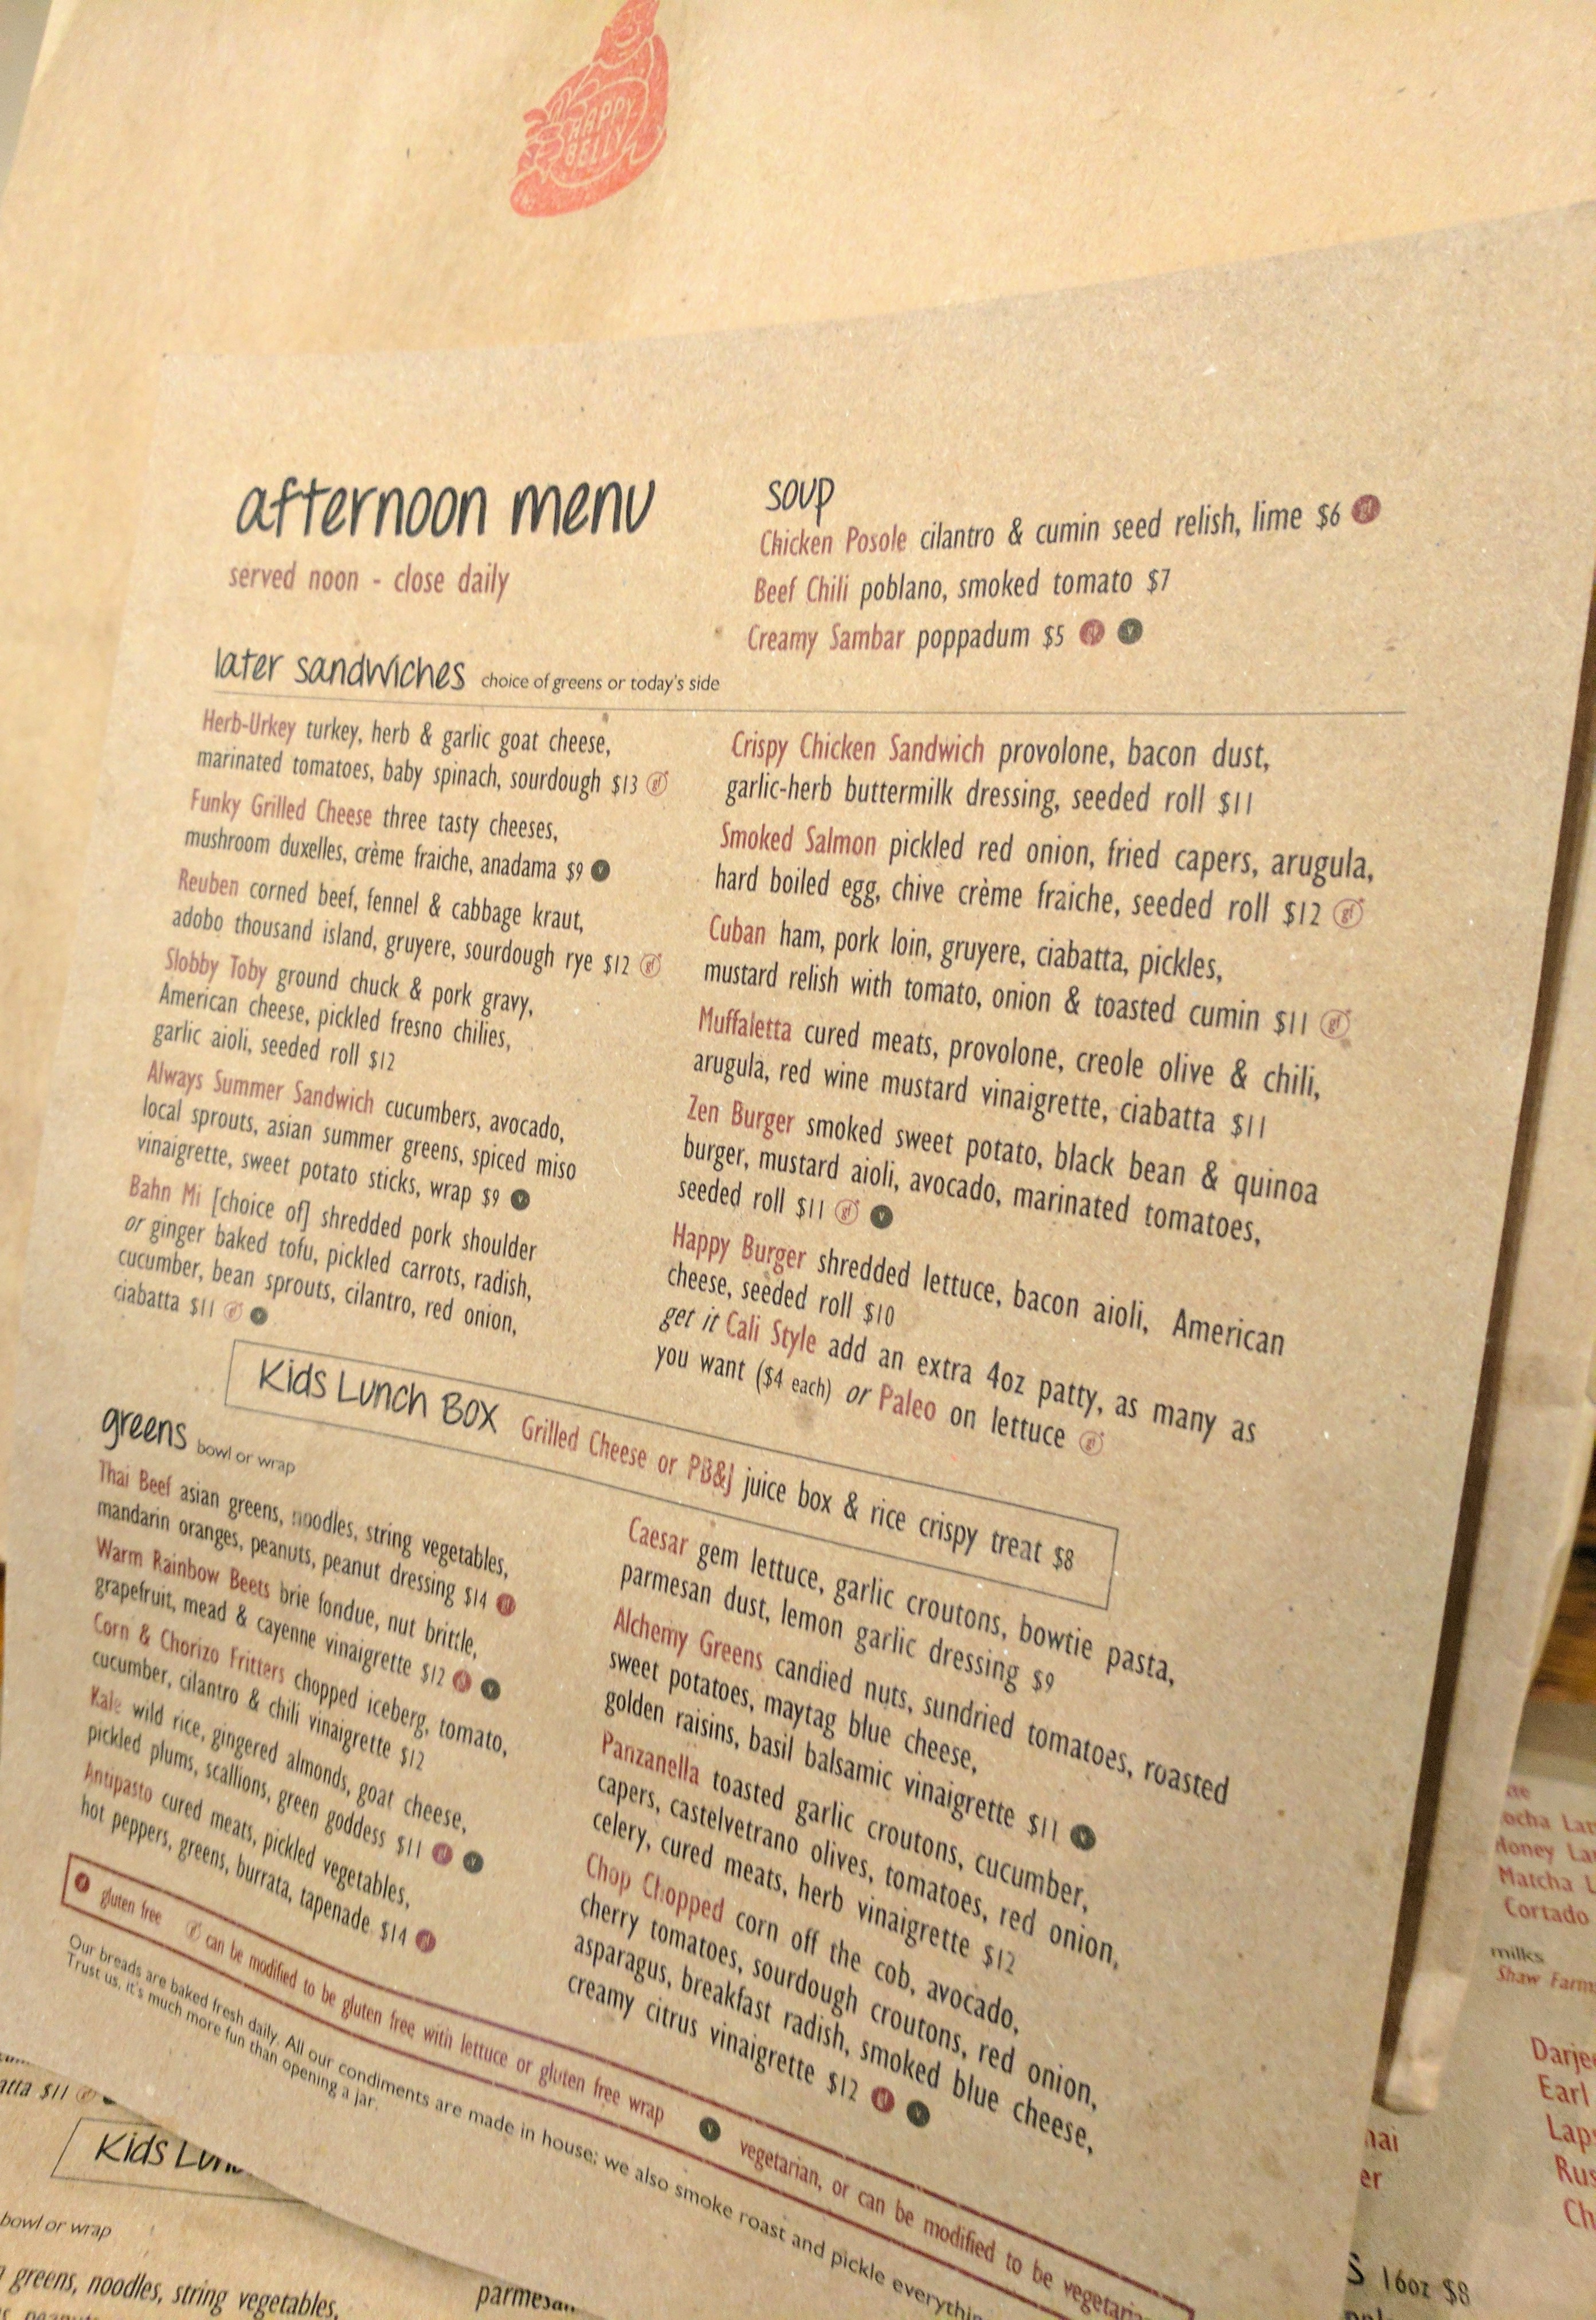 HAPPY
BELLY
afternoon menu
served noon - close daily
soup
Chicken Posole cilantro & cumin seed relish, lime $6 gf
Beef Chili poblano, smoked tomato $7
Creamy Sambar poppadum $5 gf v
later sandwiches choice of greens or today's side
Herb-Urkey turkey, herb & garlic goat cheese,
marinated tomatoes, baby spinach, sourdough $13 gf
Funky Grilled Cheese three tasty cheeses,
mushroom duxelles, crème fraiche, anadama $9 v
Reuben corned beef, fennel & cabbage kraut,
adobo thousand island, gruyere, sourdough rye $12 gf
Slobby Toby ground chuck & pork gravy,
American cheese, pickled fresno chilies,
garlic aioli, seeded roll $12
Always Summer Sandwich cucumbers, avocado,
local sprouts, asian summer greens, spiced miso
vinaigrette, sweet potato sticks, wrap $9 v
Bahn Mi [choice of] shredded pork shoulder
or ginger baked tofu, pickled carrots, radish,
cucumber, bean sprouts, cilantro, red onion,
ciabatta $11 gf v
Crispy Chicken Sandwich provolone, bacon dust,
garlic-herb buttermilk dressing, seeded roll $11
Smoked Salmon pickled red onion, fried capers, arugula,
hard boiled egg, chive crème fraiche, seeded roll $12 gf
Cuban ham, pork loin, gruyere, ciabatta, pickles,
mustard relish with tomato, onion & toasted cumin $11 gf
Muffaletta cured meats, provolone, creole olive & chili,
arugula, red wine mustard vinaigrette, ciabatta $11
Zen Burger smoked sweet potato, black bean & quinoa
burger, mustard aioli, avocado, marinated tomatoes,
seeded roll $11 gf v
Happy Burger shredded lettuce, bacon aioli, American
cheese, seeded roll $10
get it Cali Style add an extra 4oz patty, as many as
you want ($4 each) or Paleo on lettuce gf
Kids Lunch Box Grilled Cheese or PB&J juice box & rice crispy treat $8
greens bowl or wrap
Thai Beef asian greens, noodles, string vegetables,
mandarin oranges, peanuts, peanut dressing $14 gf
Warm Rainbow Beets brie fondue, nut brittle,
grapefruit, mead & cayenne vinaigrette $12 gf v
Corn & Chorizo Fritters chopped iceberg, tomato,
cucumber, cilantro & chili vinaigrette $12
Kale wild rice, gingered almonds, goat cheese,
pickled plums, scallions, green goddess $11 gf v
Antipasto cured meats, pickled vegetables,
hot peppers, greens, burrata, tapenade $14 gf
Caesar gem lettuce, garlic croutons, bowtie pasta,
parmesan dust, lemon garlic dressing $9
Alchemy Greens candied nuts, sundried tomatoes, roasted
sweet potatoes, maytag blue cheese,
golden raisins, basil balsamic vinaigrette $11 v
Panzanella toasted garlic croutons, cucumber,
capers, castelvetrano olives, tomatoes, red onion,
celery, cured meats, herb vinaigrette $12
Chop Chopped corn off the cob, avocado,
cherry tomatoes, sourdough croutons, red onion,
asparagus, breakfast radish, smoked blue cheese,
creamy citrus vinaigrette $12 gf v
gluten free gf can be modified to be gluten free with lettuce or gluten free wrap v vegetarian, or can be modified to be vegetaria
Our breads are baked fresh daily. All our condiments are made in house; we also smoke roast and pickle everythin
Trust us, it's much more fun than opening a jar.
atta $11
Kids Lun
bowl or wrap
greens, noodles, string vegetables,
parmesan
ocha Lat
Honey Lat
Matcha L
Cortado
milks
Shaw Farm
Darje
Earl
Laps
Rus
Ch
hai
er
s 16oz $8